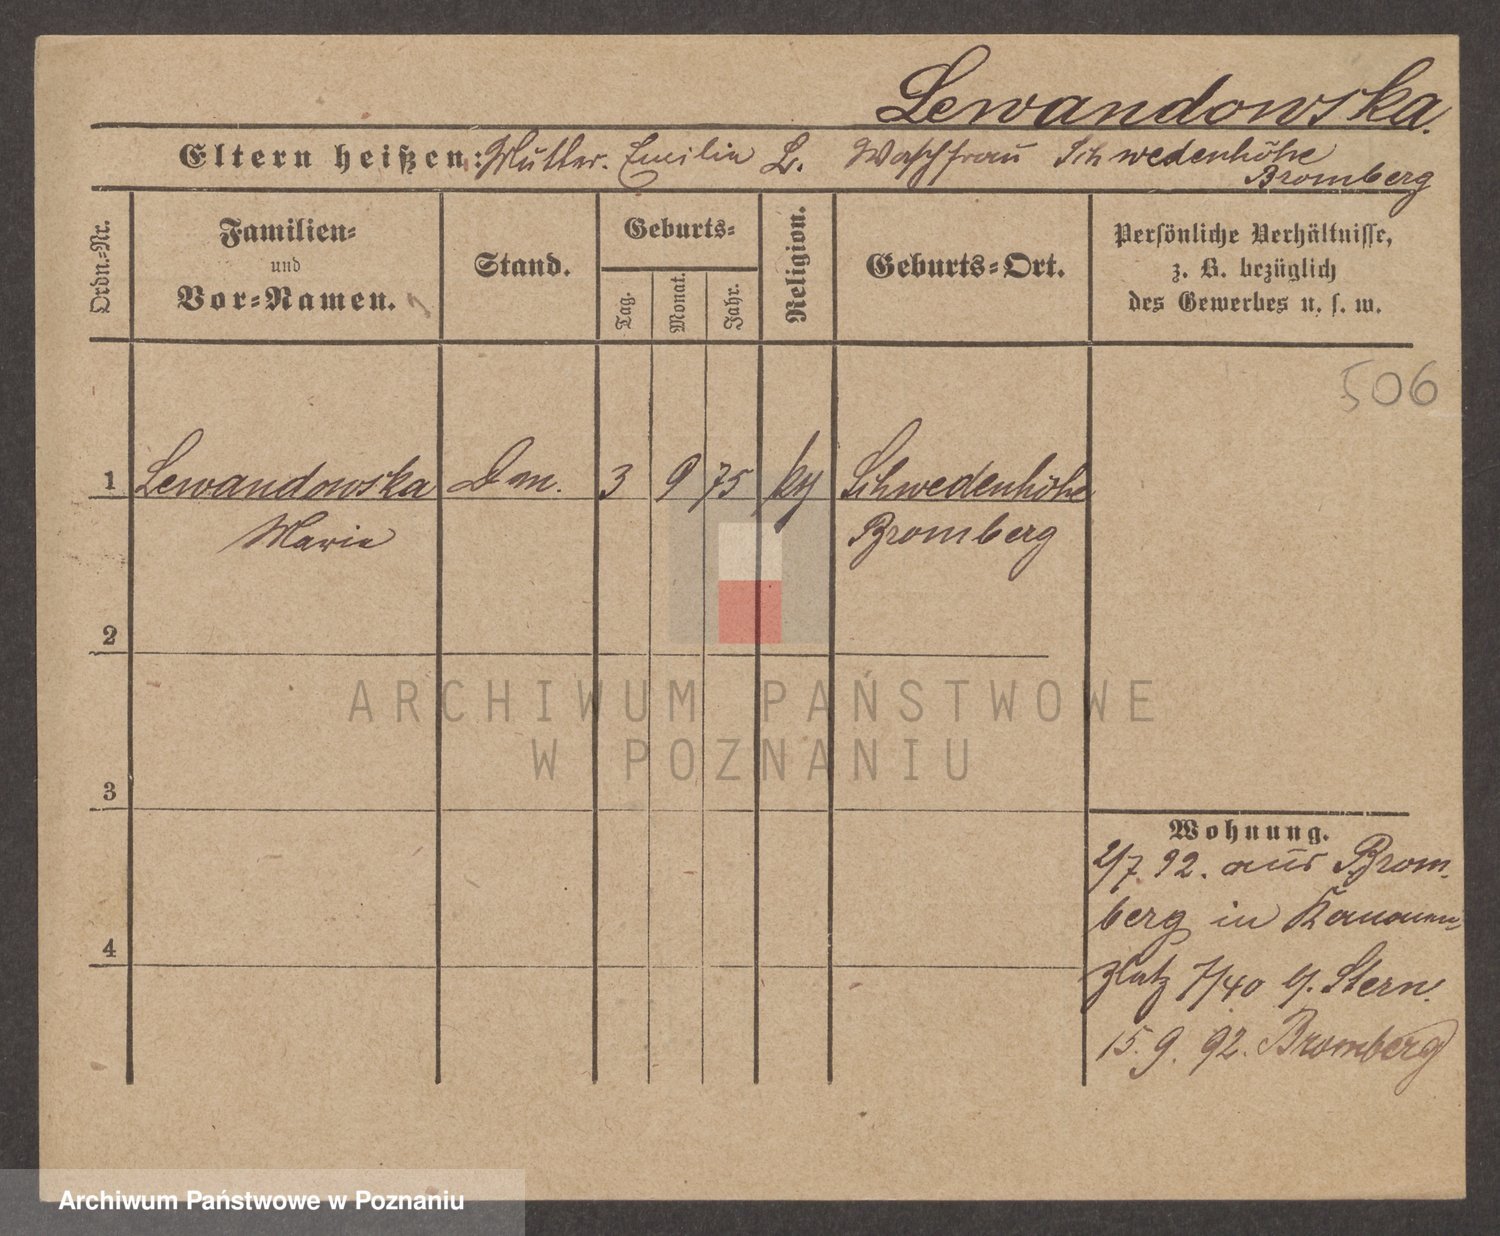 Lewandowska.
Eltern heißen: Mutter. Emilie L. Waschfrau Schwedenhöhe
Bromberg
Ordn.-Nr.
Familien-
und
Vor-Namen.
Stand.
Geburts-
Tag.
Monat.
Jahr.
Religion.
Geburts-Ort.
Persönliche Verhältnisse,
z. B. bezüglich
des Gewerbes u. s. w.
506
1 Lewandowska Dm. 3 9 75 Schwedenhöhe
Marie Bromberg
2
ARCHIWUM PAŃSTWOWE
W POZNANIU
3
Wohnung.
2/7. 92. aus Brom-
berg in Kanonen-
platz 7/40 b/. Stern.
4
15. 9. 92. Bromberg
Archiwum Państwowe w Poznaniu